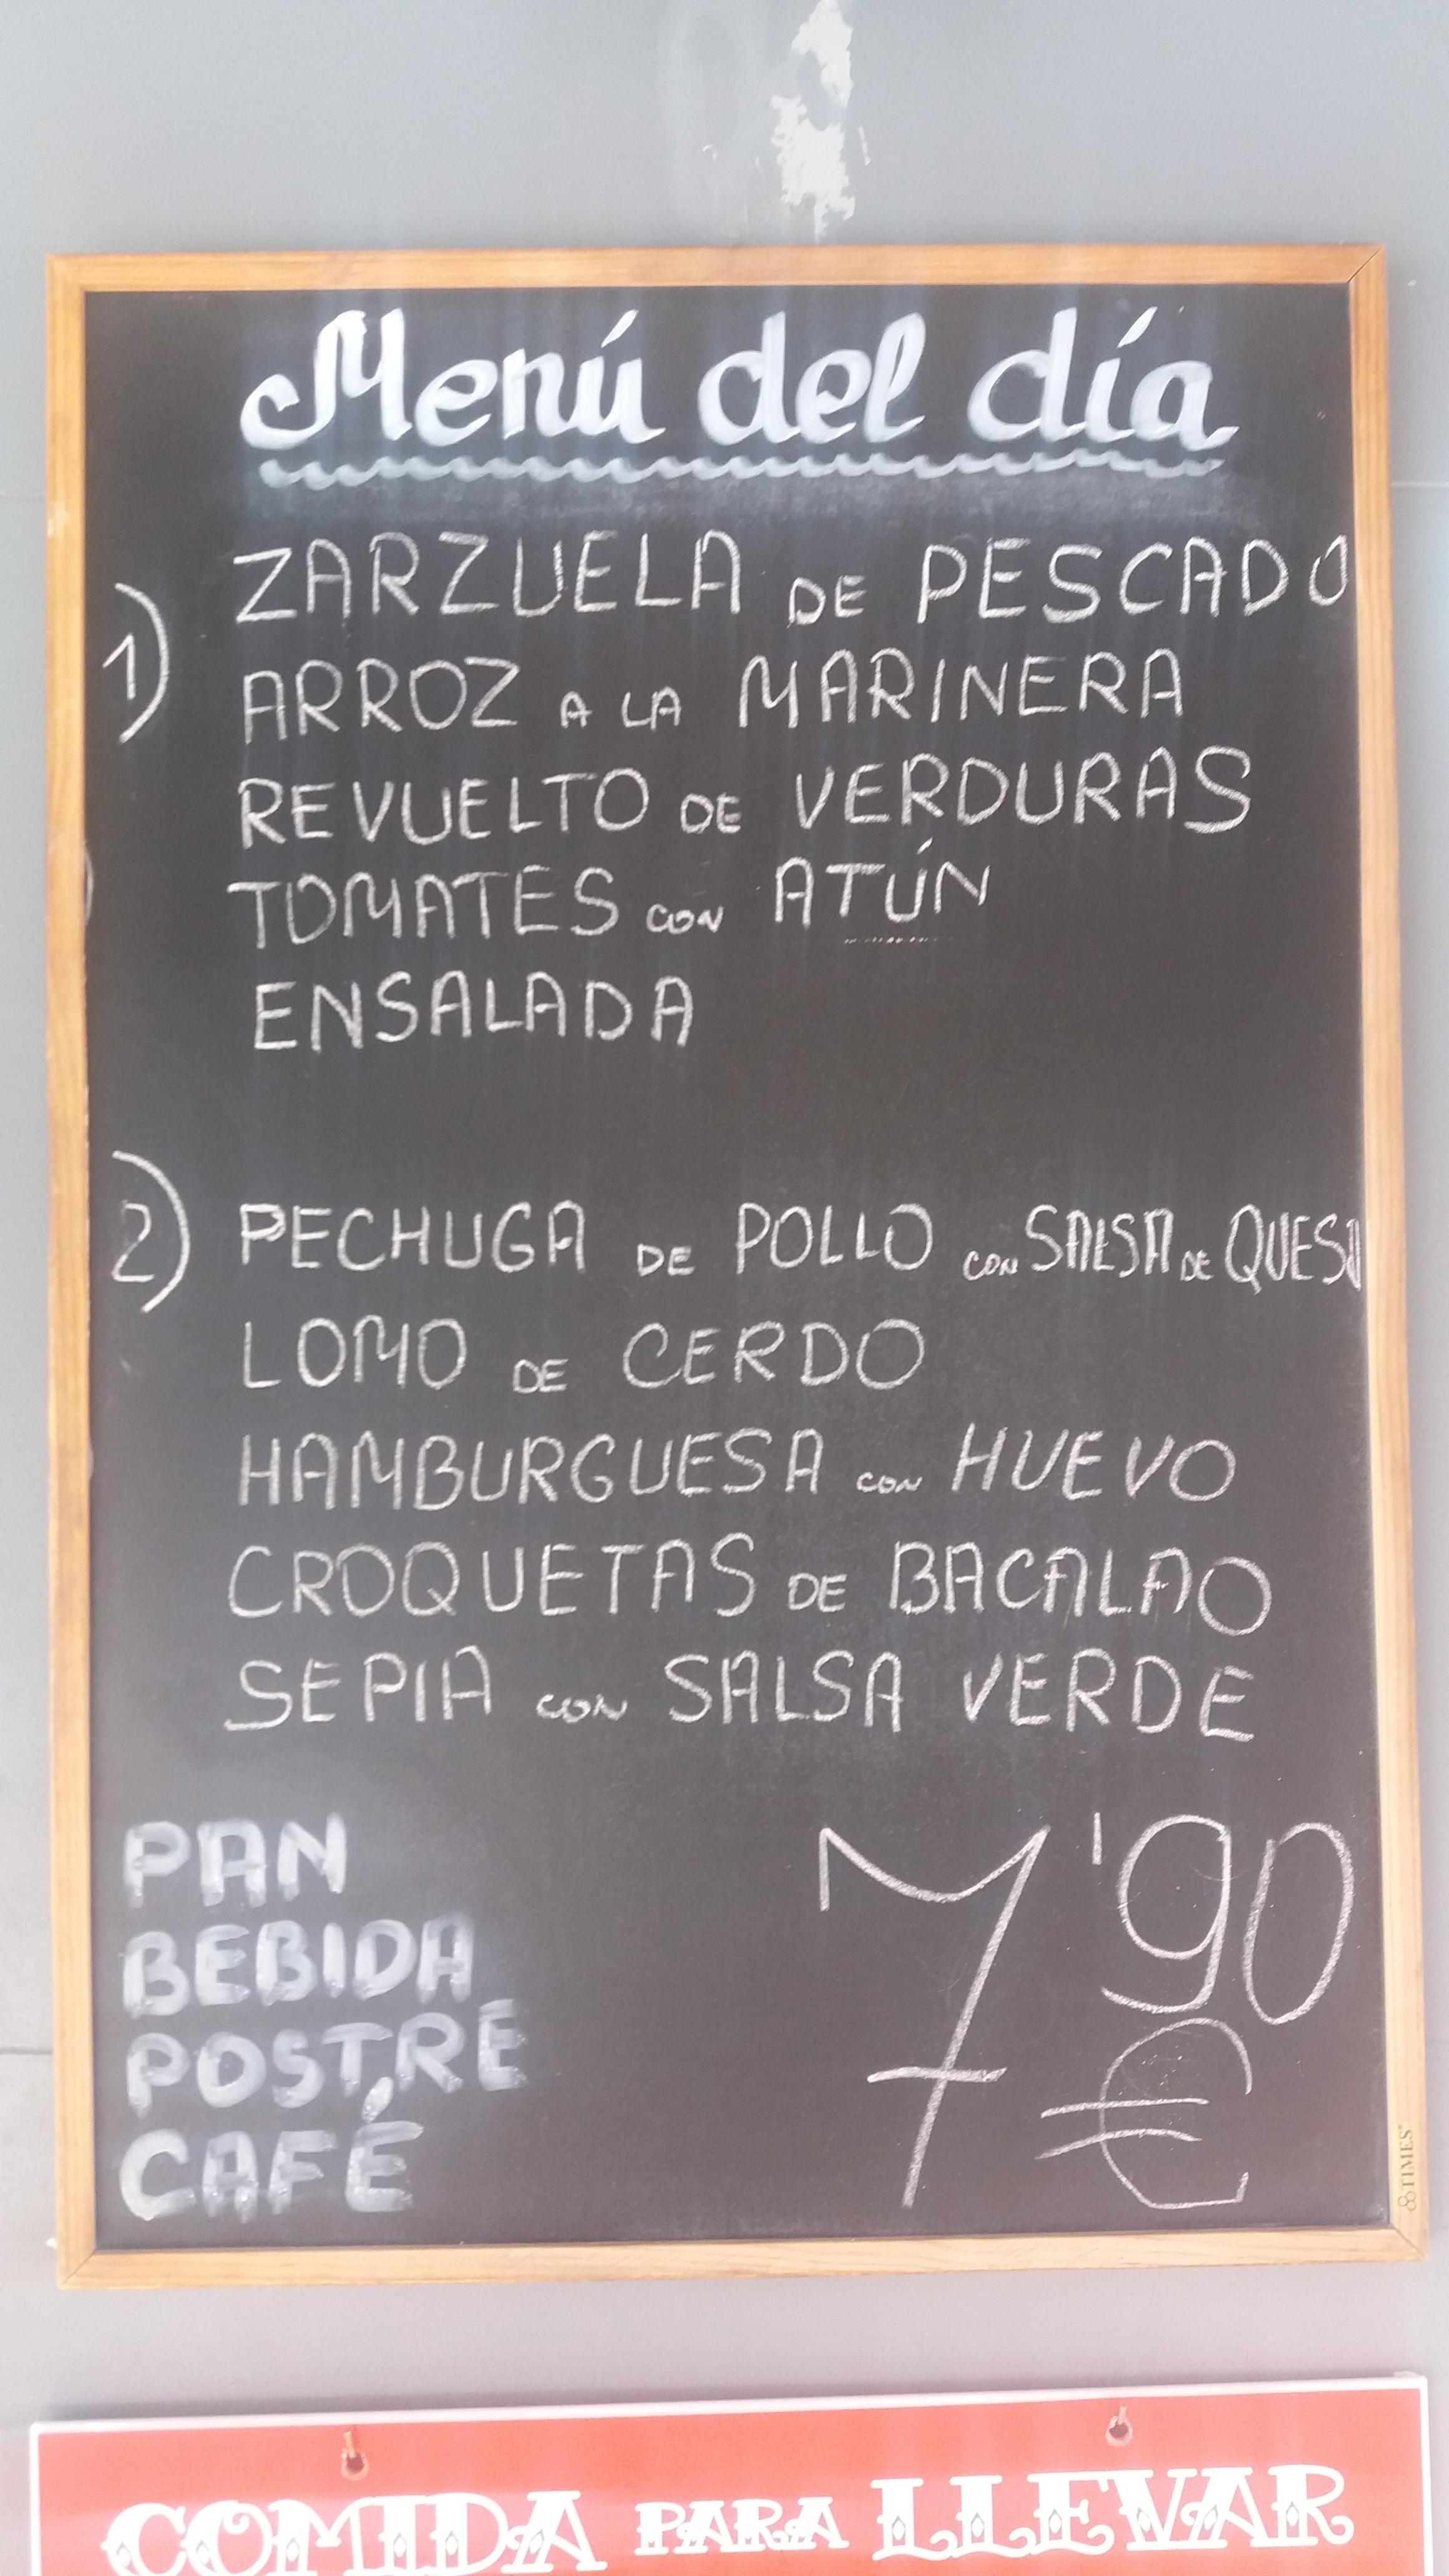 Menú del día
1) ZARZUELA DE PESCADO
ARROZ A LA MARINERA
REVUELTO DE VERDURAS
TOMATES CON ATÚN
ENSALADA
2) PECHUGA DE POLLO CON SALSA DE QUESO
LOMO DE CERDO
HAMBURGUESA CON HUEVO
CROQUETAS DE BACALAO
SEPIA CON SALSA VERDE
PAN
BEBIDA
POSTRE
CAFÉ
7'90 €
TIMES
COMIDA PARA LLEVAR